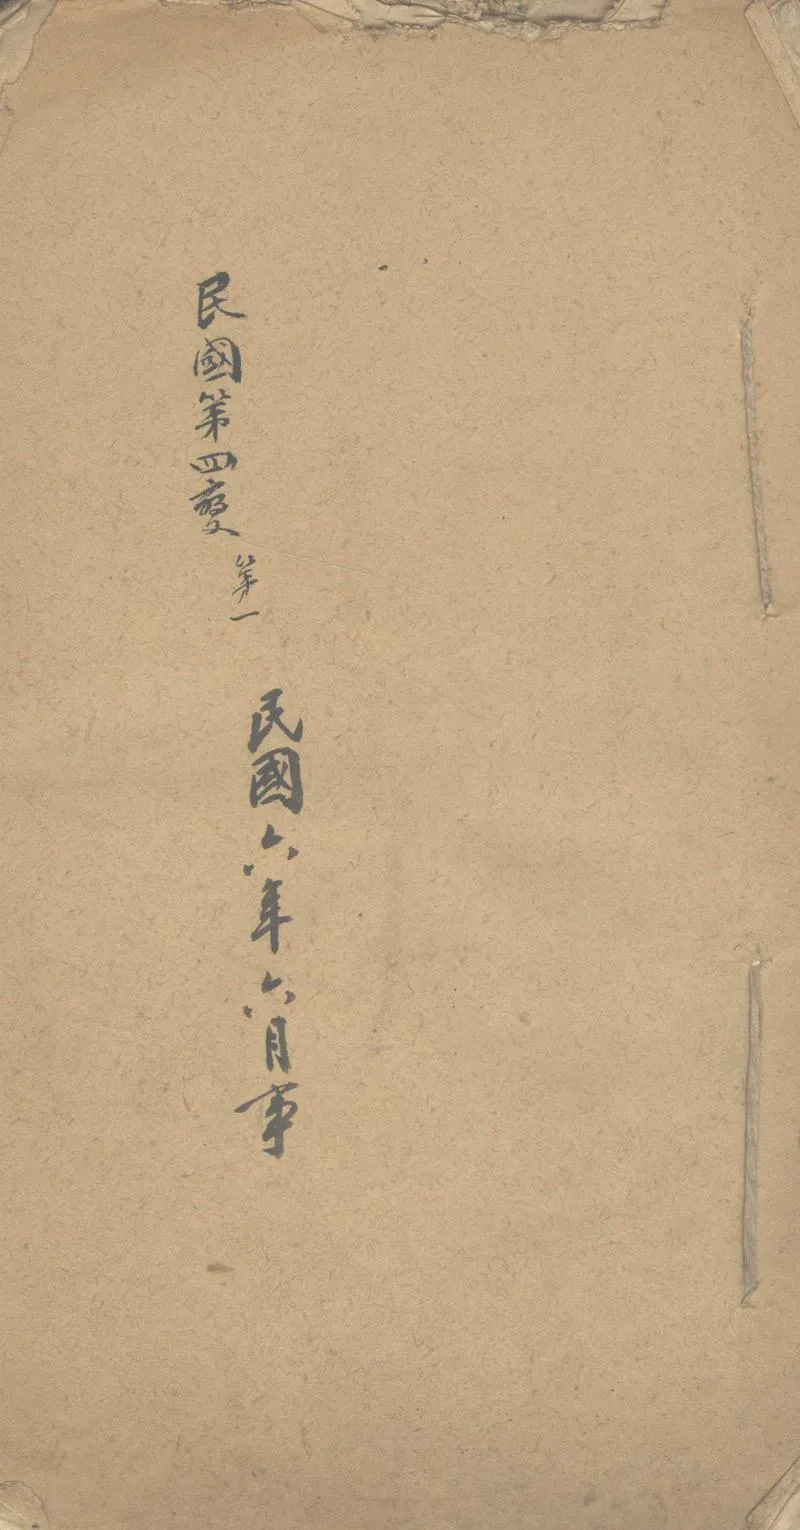 民國六年六月事
民國第四變 第一